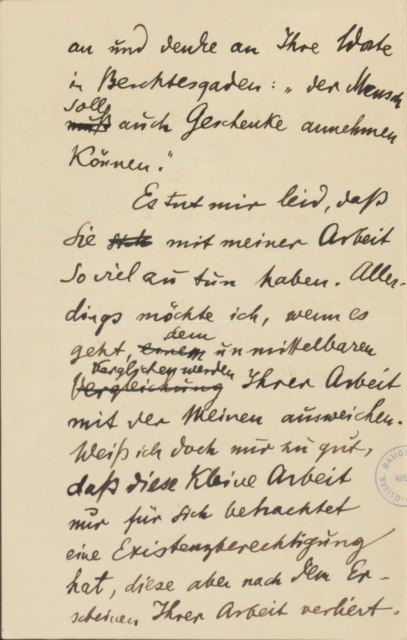 an und denke an Ihre Worte
in Berchtesgaden: „der Mensch
soll
muß auch Geschenke annehmen
können."
Es tut mir leid, daß
Sie sich mit meiner Arbeit
so viel zu tun haben. Aller-
dings möchte ich, wenn es
dem
geht, einem unmittelbaren
Verglichen werden
Vergleichung Ihrer Arbeit
mit der Meinen ausweichen.
Weiß ich doch nur zu gut,
daß diese kleine Arbeit
nur für sich betrachtet
eine Existenzberechtigung
hat, diese aber nach dem Er-
scheinen Ihrer Arbeit verliert.